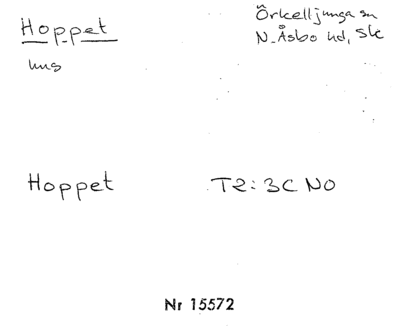 Hoppet
Örkelljunga sn
N. Åsbo hd, Sk
hus
Hoppet
T2: 3C NO
Nr 15572